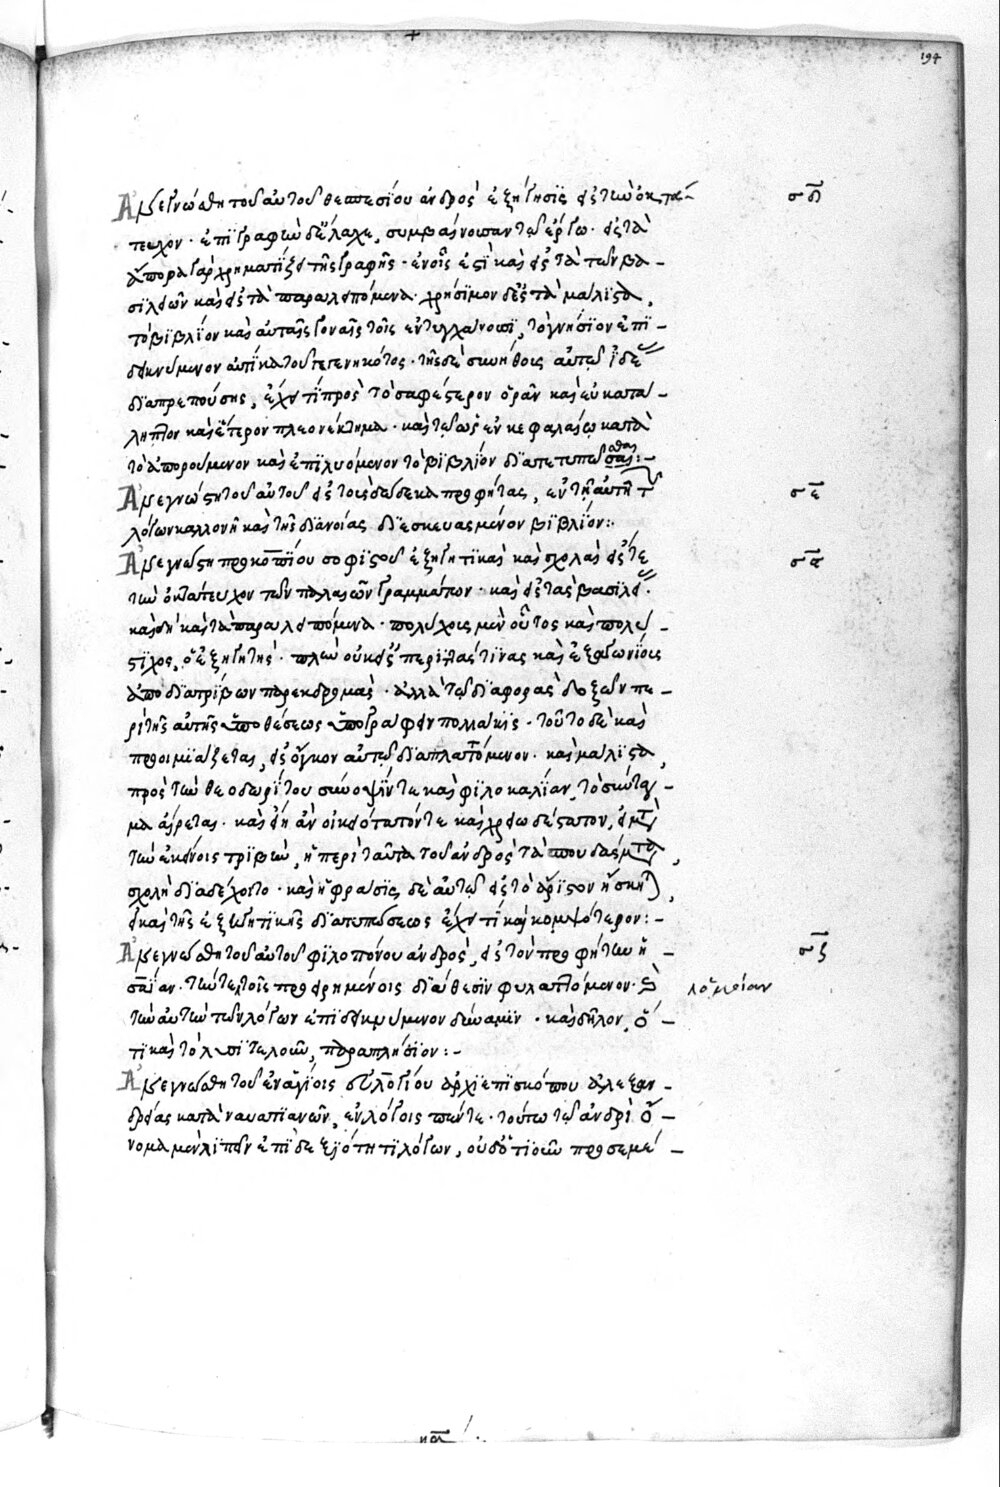 194
Ἀνεγνώσθη τοῦ αὐτοῦ θεσπεσίου ἀνδρὸς ἐξήγησις εἰς τὴν ὀκτά– σδ
τευχον· ἐπιγραφὴν δὲ ἔλαχε, συμβαίνουσαν τῷ ἔργῳ· εἰς τὰ
ἄπορα γὰρ χρηματίζει τῆς γραφῆς· ἐν οἷς ἐστὶ καὶ εἰς τὰ τῶν βα–
σιλειῶν καὶ εἰς τὰ παραλειπόμενα· χρήσιμον δὲ ἐς τὰ μάλιστα,
τὸ βιβλίον καὶ αὐταῖς γοναῖς τοῖς ἐντυγχάνουσι, τὸ γνήσιον ἐπι–
δεικνύμενον αὐτίκα τοῦ γεγεννηκότος· τῆς δὲ συνήθοις αὐτῷ ἰδέ
διαπρεπούσης, ἔχει τι πρὸς τὸ σαφέστερον ὁρᾶν καὶ εὐκατα–
ληπτον καὶ ἕτερον πλεονέκτημα· καὶ τῷ ὡς ἐν κεφαλαίῳ κατὰ
τὸ ἀπορούμενον καὶ ἐπιλυόμενον τὸ βιβλίον διατετυπῶσθαι:–
Ἀνεγνώσθη τοῦ αὐτοῦ εἰς τοὺς δώδεκα προφήτας, ἐν τῇ αὐτῇ τ σε
λόγων καλλονῇ καὶ τῆς διανοίας διεσκευασμένον βιβλίον:
Ἀνεγνώσθη προκοπίου σοφιστοῦ ἐξηγητικαὶ καὶ σχολαὶ εἴς τε σς
τὴν ὀκτάτευχον τῶν παλαιῶν γραμμάτων· καὶ εἰς τὰς βασιλεί·
καὶ δὴ καὶ τὰ παραλειπόμενα· πολύχους μὲν οὗτος καὶ πολύ–
στιχος, ὁ ἐξηγητής· πλὴν οὐκ εἰς περιττάς τινας καὶ ἐξαγωνίους
ἀποδιατρίβων παρεκδρομάς· ἀλλὰ τῷ διαφορὰς δοξῶν πε–
ρὶ τῆς αὐτῆς ὑποθέσεως ὑπογράφειν πολλάκις· τοῦτο δὲ καὶ
προοιμιάζεται, εἰς ὄγκον αὐτῷ διαπλαττόμενον· καὶ μάλιστα,
πρὸς τὴν θεοδωρίτου σύνοψίν τε καὶ φιλοκαλίαν, τὸ σύνταγ–
μα αἴρεται· καὶ εἴη ἂν οἰκειότατόν τε καὶ χρειωδέστατον, μετὰ
τὴν ἐκείνοις τριβὴν, ἡ περὶ ταῦτα τοῦ ἀνδρὸς τὰ σπουδάσματα,
σχολὴ διαδέχοιτο· καὶ ἡ φράσις δὲ αὐτῷ εἰς τὸ ἄριστον ἤσκηται,
εἰ καὶ τῆς ἐξηγητικῆς διατυπώσεως ἔχει τι καὶ κομψότερον:–
Ἀνεγνώσθη τοῦ αὐτοῦ φιλοπόνου ἀνδρὸς, εἰς τὸν προφήτην ἠ– σζ
σαΐαν· τὴν αὐτὴν τοῖς προειρημένοις διάθεσιν φυλαττόμενον·
τὴν αὐτὴν τῶν λόγων ἐπιδεικνύμενον δύναμιν· καὶ δῆλον, ὅ–
τι καὶ τὸ λυσιτελοῦν, παραπλήσιον:–
Ἀνεγνώσθη τοῦ ἐν ἁγίοις εὐλογίου ἀρχιεπισκόπου ἀλεξαν–
δρείας κατὰ ναυατιανῶν, ἐν λόγοις πέντε· τούτῳ τῷ ἀνδρὶ ὄ–
νομα μὲν λιπεῖν ἐπὶ δεξιότητι λόγων, οὐδ' ὁτιοῦν προσεμέ–